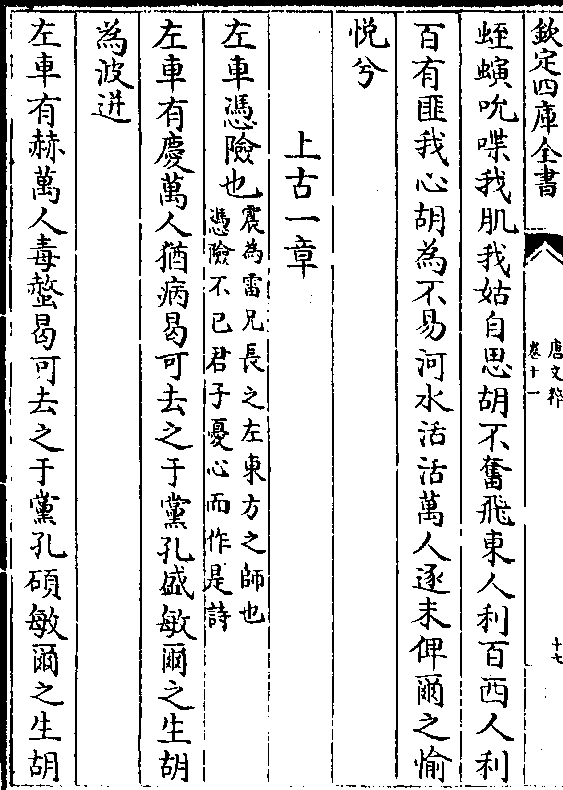 欽定四庫全書
唐文粹
卷十一
十七
蛭螾吮喋我肌我姑自思胡不奮飛東人利百西人利
百有匪我心胡為不易河水活活萬人逐末俾爾之愉
悅兮
上古一章
左車憑險也震為雷兄長之左東方之師也
憑險不已君子憂心而作是詩
左車有慶萬人猶病曷可去之于黨孔盛敏爾之生胡
為波迸
左車有赫萬人毒螫曷可去之于黨孔碩敏爾之生胡